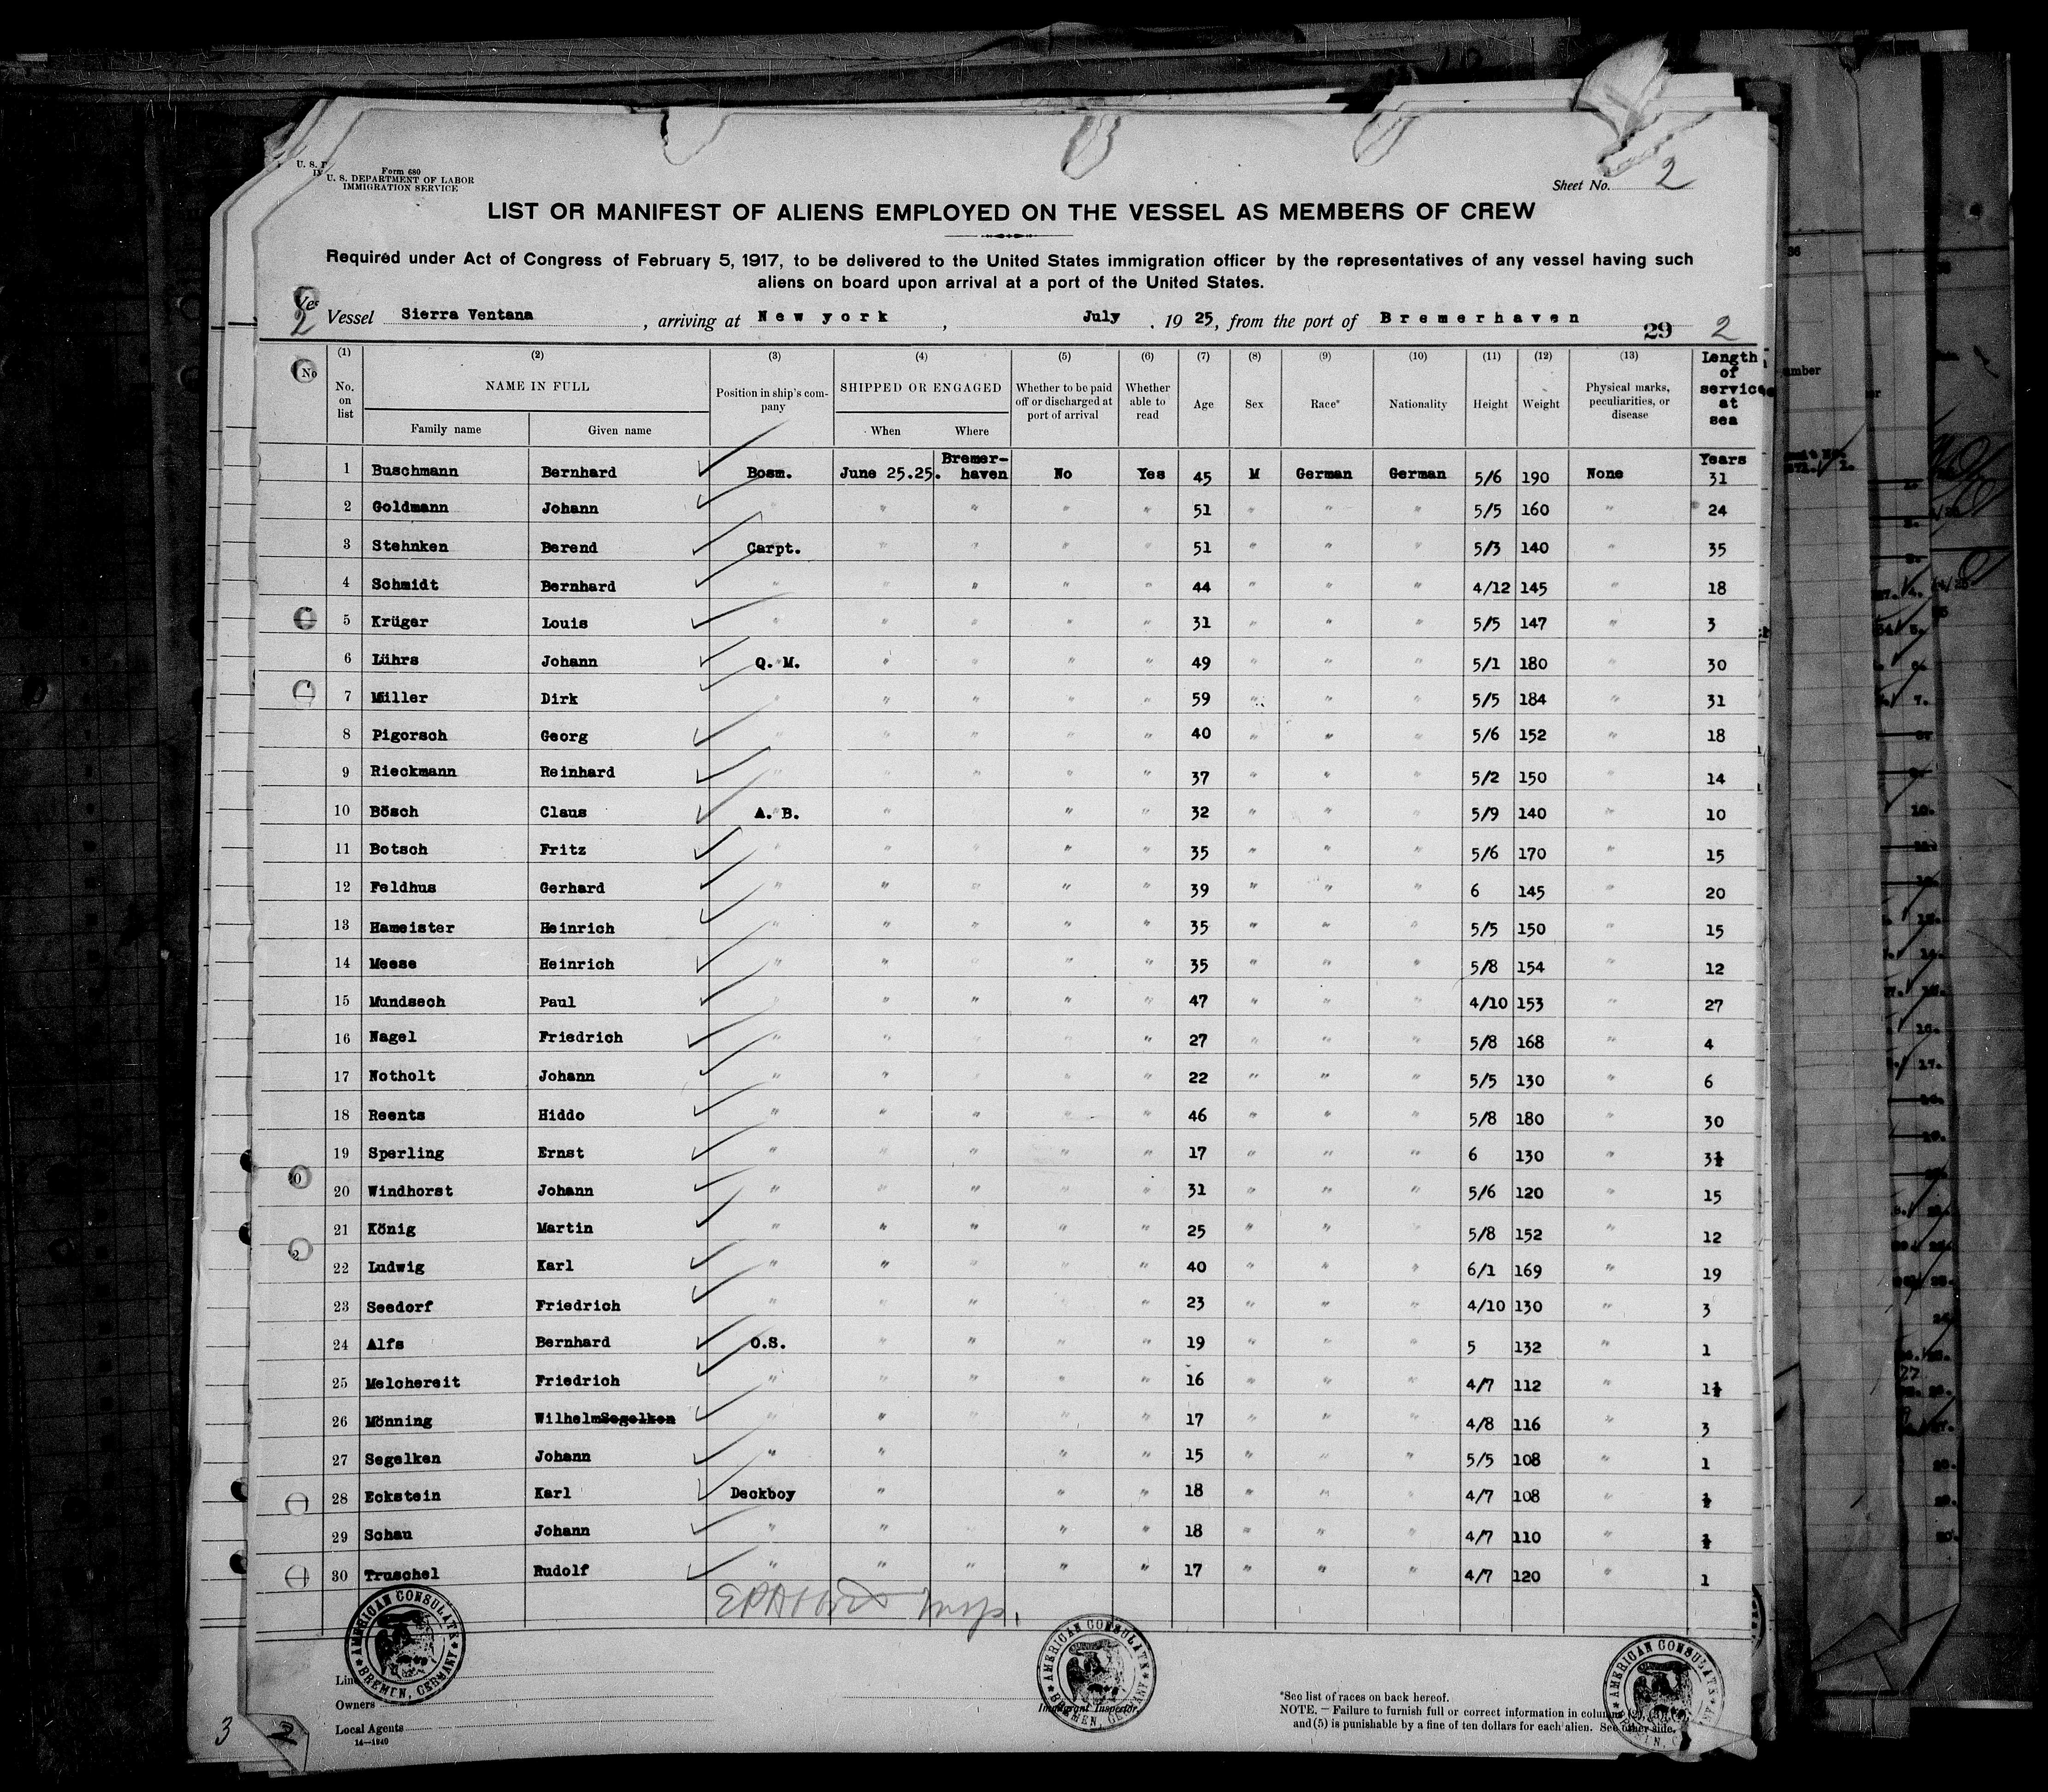 Form 680
U. S. DEPARTMENT OF LABOR
IMMIGRATION SERVICE
Sheet No. 2
LIST OR MANIFEST OF ALIENS EMPLOYED ON THE VESSEL AS MEMBERS OF CREW
Required under Act of Congress of February 5, 1917, to be delivered to the United States immigration officer by the representatives of any vessel having such
aliens on board upon arrival at a port of the United States.
2 Vessel Sierra Ventana, arriving at New york, July, 1925, from the port of Bremerhaven 29 2
(1) (2) (3) (4) (5) (6) (7) (8) (9) (10) (11) (12) (13) Length of service at sea
No. on list NAME IN FULL Position in ship's company SHIPPED OR ENGAGED Whether to be paid off or discharged at port of arrival Whether able to read Age Sex Race* Nationality Height Weight Physical marks, peculiarities, or disease
Family name Given name When Where
1 Buschmann Bernhard Bosm. June 25.25. Bremerhaven No Yes 45 M German German 5/6 190 None Years 31
2 Goldmann Johann " " " " " 51 " " " 5/5 160 " 24
3 Stehnken Berend Carpt. " " " " 51 " " " 5/3 140 " 35
4 Schmidt Bernhard " " " " " 44 " " " 4/12 145 " 18
5 Krüger Louis " " " " " 31 " " " 5/5 147 " 3
6 Lührs Johann Q. M. " " " " 49 " " " 5/1 180 " 30
7 Müller Dirk " " " " " 59 " " " 5/5 184 " 31
8 Pigorsch Georg " " " " " 40 " " " 5/6 152 " 18
9 Rieckmann Reinhard " " " " " 37 " " " 5/2 150 " 14
10 Bösch Claus A. B. " " " " 32 " " " 5/9 140 " 10
11 Botsch Fritz " " " " " 35 " " " 5/6 170 " 15
12 Feldhus Gerhard " " " " " 39 " " " 6 145 " 20
13 Hameister Heinrich " " " " " 35 " " " 5/5 150 " 15
14 Meese Heinrich " " " " " 35 " " " 5/8 154 " 12
15 Mundsech Paul " " " " " 47 " " " 4/10 153 " 27
16 Nagel Friedrich " " " " " 27 " " " 5/8 168 " 4
17 Notholt Johann " " " " " 22 " " " 5/5 130 " 6
18 Reents Hiddo " " " " " 46 " " " 5/8 180 " 30
19 Sperling Ernst " " " " " 17 " " " 6 130 " 3½
20 Windhorst Johann " " " " " 31 " " " 5/6 120 " 15
21 König Martin " " " " " 25 " " " 5/8 152 " 12
22 Ludwig Karl " " " " " 40 " " " 6/1 169 " 19
23 Seedorf Friedrich " " " " " 23 " " " 4/10 130 " 3
24 Alfs Bernhard O.S. " " " " 19 " " " 5 132 " 1
25 Melchereit Friedrich " " " " " 16 " " " 4/7 112 " 1½
26 Mönning Wilhelm Segelken " " " " " 17 " " " 4/8 116 " 3
27 Segelken Johann " " " " " 15 " " " 5/5 108 " 1
28 Eckstein Karl Deckboy " " " " 18 " " " 4/7 108 " ½
29 Schau Johann " " " " " 18 " " " 4/7 110 " ½
30 Truschel Rudolf " " " " " 17 " " " 4/7 120 " 1
Insp.
AMERICAN CONSULATE BREMEN, GERMANY
AMERICAN CONSULATE BREMEN, GERMANY
AMERICAN CONSULATE
Owners
Local Agents
14—1240
Immigrant Inspector.
*See list of races on back hereof.
NOTE. — Failure to furnish full or correct information in columns (2), (3), (4),
and (5) is punishable by a fine of ten dollars for each alien. See other side.
3 2